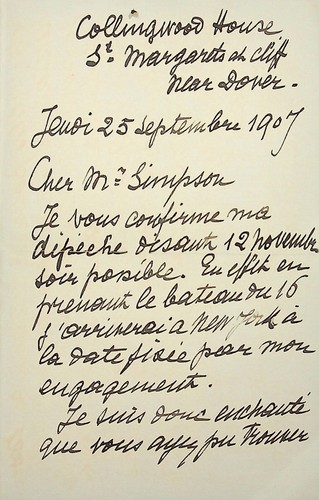 Collingwood House
St. Margarets at Cliff
Near Dover.
Jeudi 25 septembre 1907
Cher Mr. Simpson
Je vous confirme ma
dépeche disant 12 novembre
soir possible. En effet en
prenant le bateau du 16
j'arriverai a New York à
la date fixée par mon
engagement.
Je suis donc enchanté
que vous ayez pu trouver